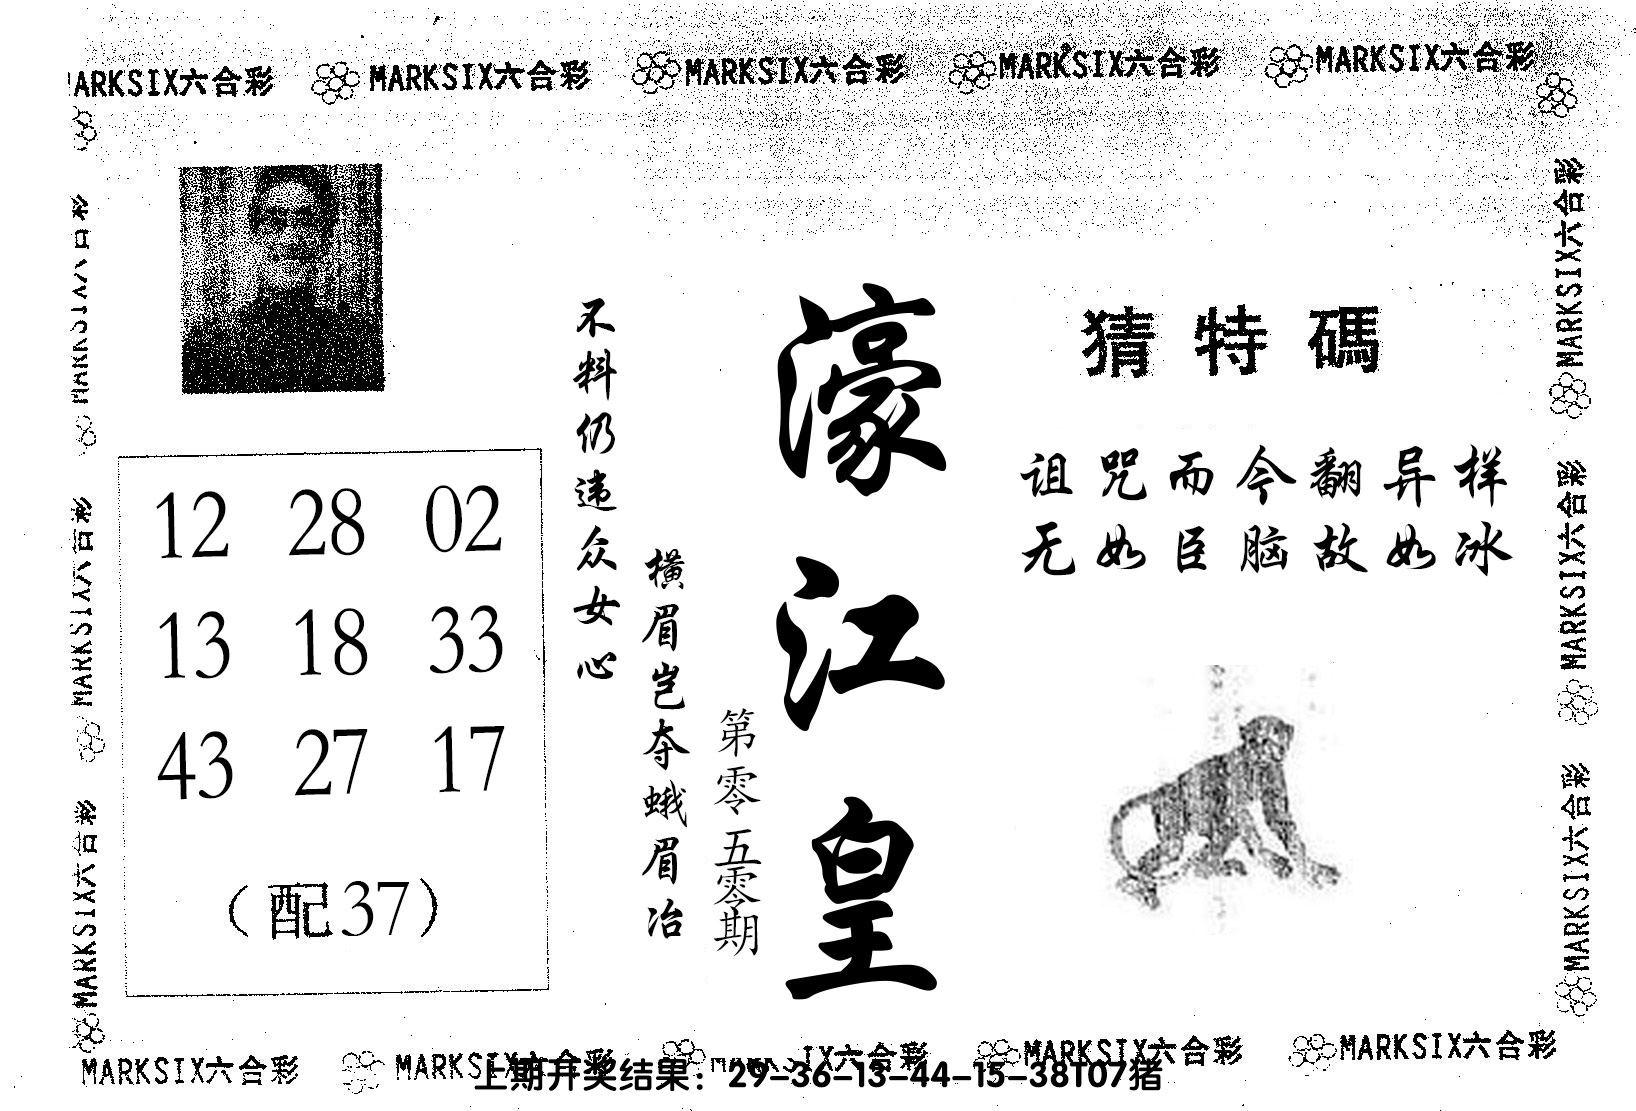 MARKSIX六合彩 MARKSIX六合彩 MARKSIX六合彩 MARKSIX六合彩
猜特碼
诅咒而今翻异样
无如臣脑故如冰
濠江皇
第零零五零期
横眉岂夺蛾眉冶
不料仍违众女心
12 28 02
13 18 33
43 27 17
（配37）
MARKSIX六合彩
MARKSIX六合彩
MARKSIX六合彩
MARKSIX六合彩
MARKSIX六合彩
MARKSIX六合彩 MARKSIX六合彩 MARKSIX六合彩 MARKSIX六合彩
上期开奖结果：29-36-13-44-15-38T07猪